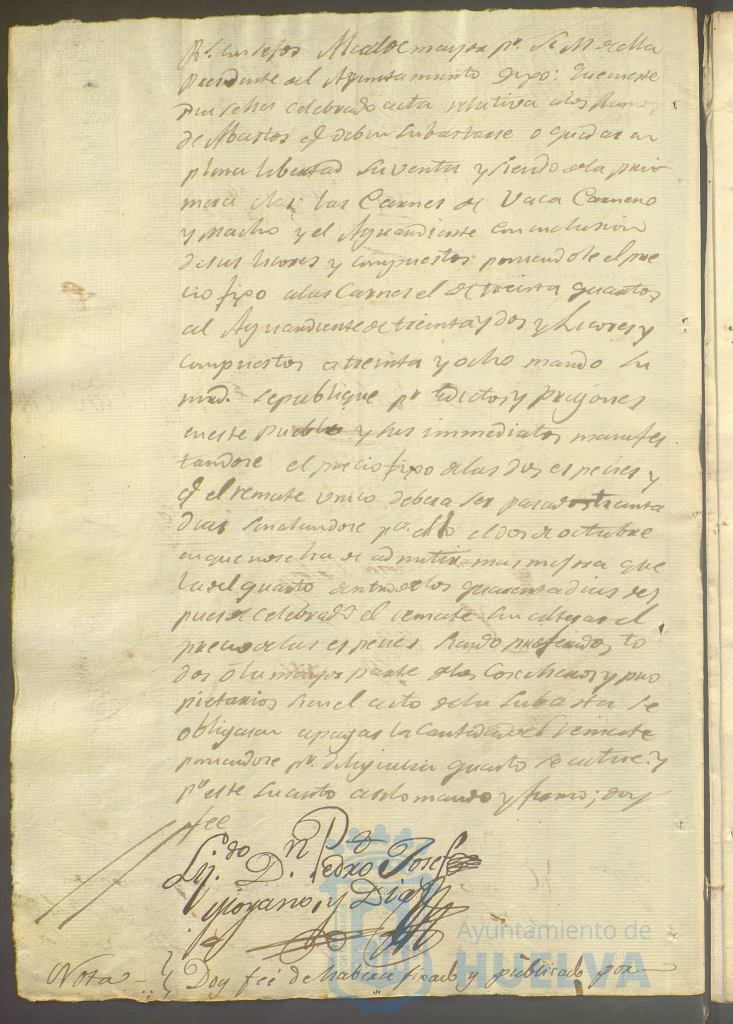 Rs. Consejos Alcalde mayor pr. S. M. de ella
Presidente del Ayuntamiento dixo: que en este
dia se ha celebrado acta relativa a los Ramos
de Abastos qe deben subastarse o quedar en
plena libertad su venta y siendo de la pri
mera clas: las Carnes de Vaca Carnero
y Macho y el Aguardiente con inclusion
de sus licores y compuestos poniendole el pre
cio fixo a las Carnes el de treinta quartos
al Aguardiente de treinta y dos y Licores y
compuestos a treinta y ocho mando su
mrd. se publique pr. Edictos y Pregones
en este Pueblo y sus immediatos manifes
tandose el precio fixo de las dos especies y
qe el remate unico debera ser pasados treinta
dias señalandose pa. ello el dos de octubre
en que no se ha de admitir mas mejora que
la del quarto dentro de los quarenta dias des
pues de celebrado el remate sin alterar el
precio de las especies siendo preferidos to
dos ó la mayor parte de los Cosecheros y pro
pietarios si en el acto de la subasta se
obligasen a pagar la cantidad del remate
poniendose pr. diligencia quanto se actue: y
pr. este su auto asi lo mando y firmo; doy
fee
Lizdo. Dn. Pedro Josef
Moyano, y Diaz
Nota Doy feé de haberse fixado y publicado por
Ayuntamiento de
HUELVA